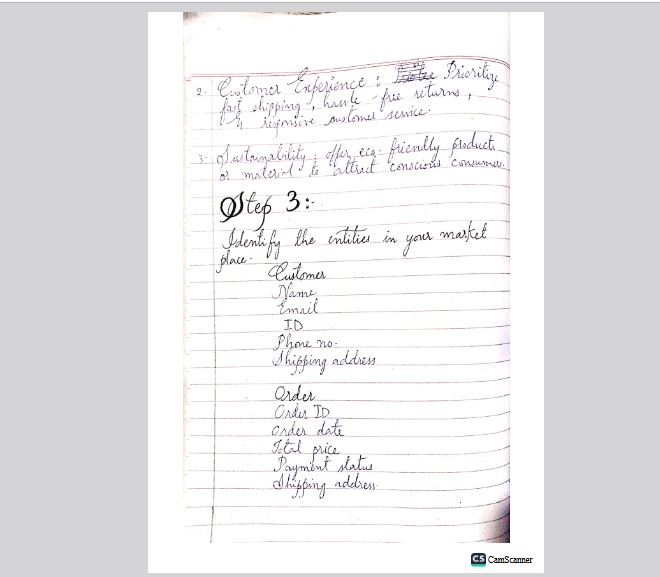 2. Customer Experience : Prioritize
fast shipping, hassle-free returns,
& responsive customer service.
3. Sustainability : offer eco-friendly products
or material to attract conscious consumers.
Step 3:-
Identify the entities in your market
place.
Customer
Name
Email
ID
Phone no.
Shipping address
Order
Order ID
Order date
Total price
Payment status
Shipping address
CS CamScanner